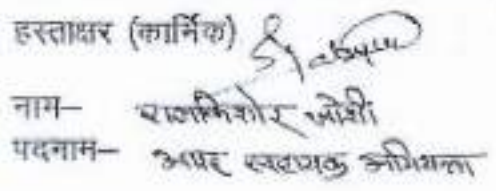 हस्ताक्षर (कार्मिक)
नाम– राजकिशोर जोशी
पदनाम– अपर सहायक अभियन्ता